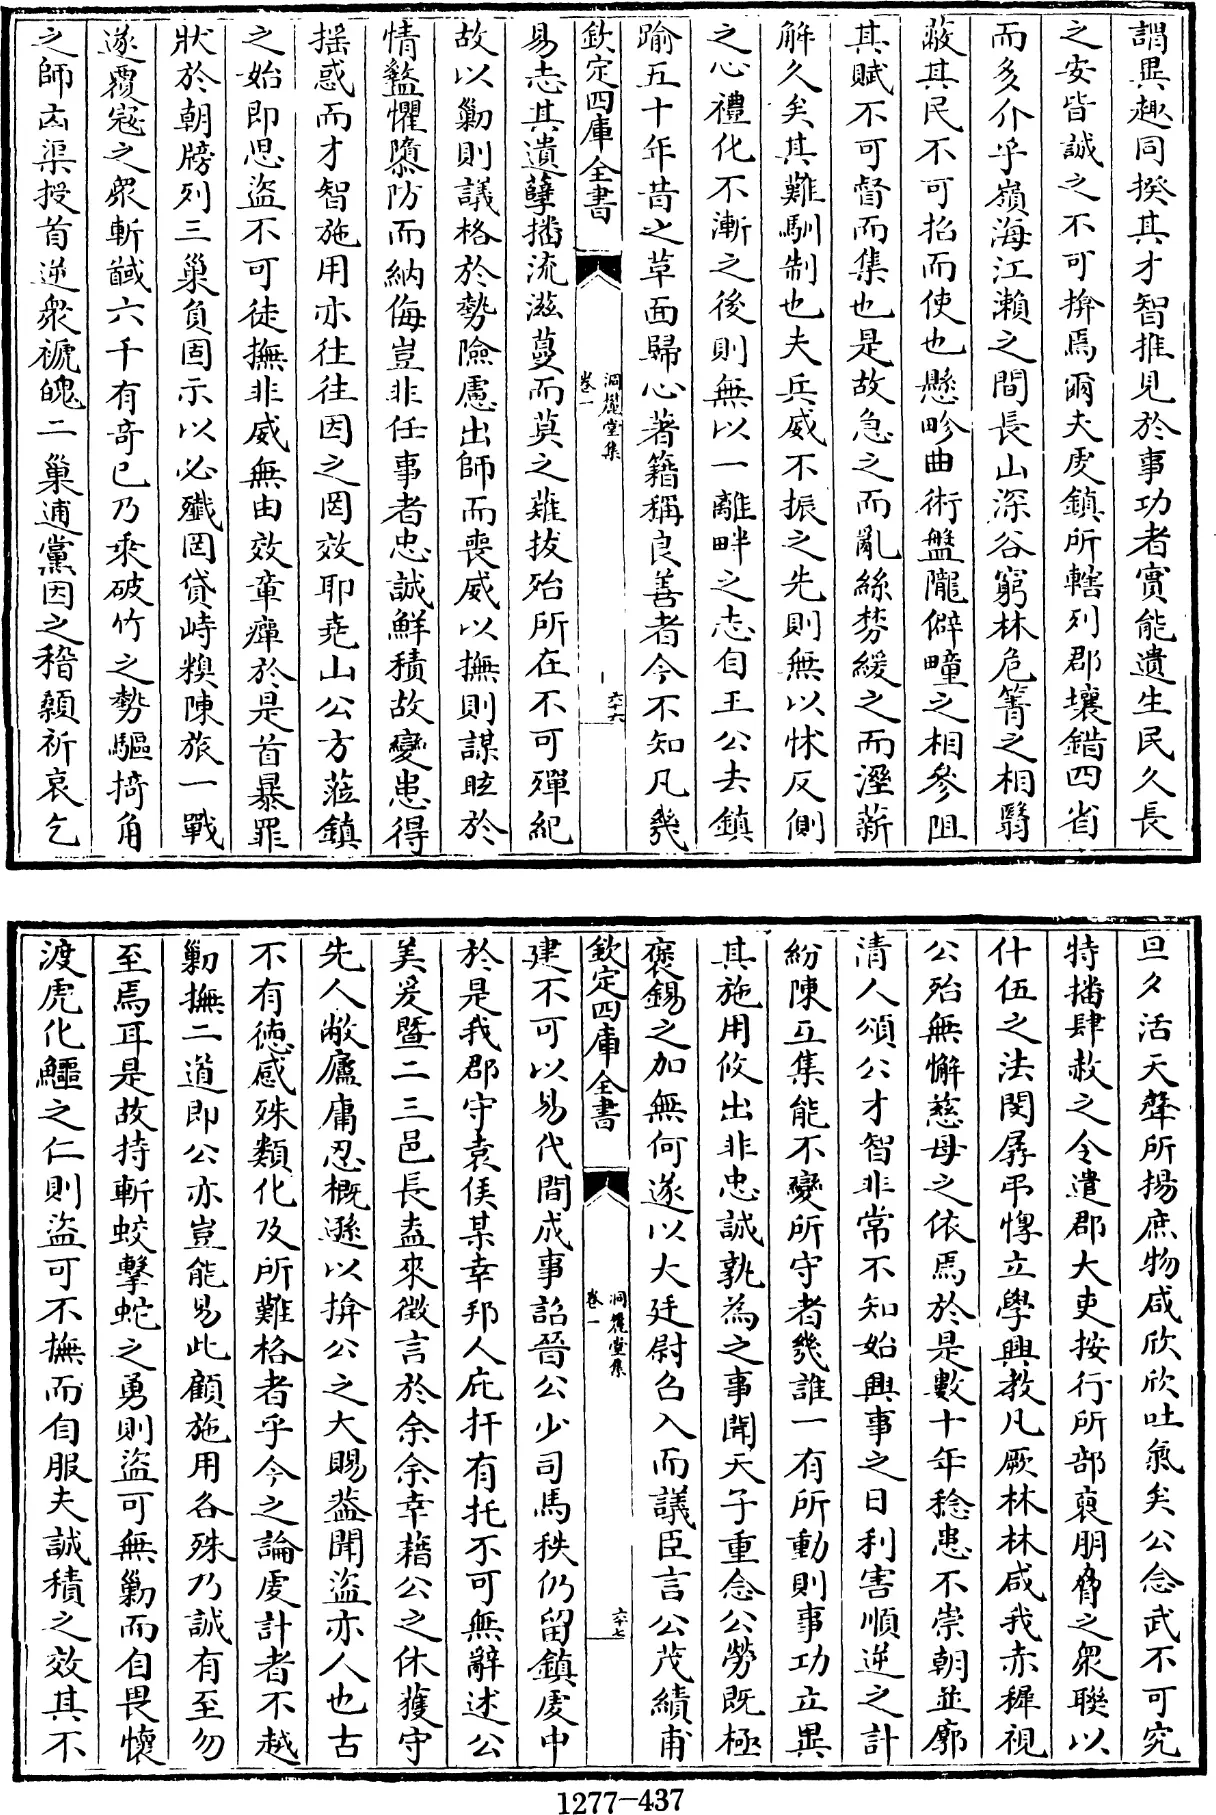 謂異趣同揆其才智推見於事功者實能遺生民久長
之安皆誠之不可揜焉爾夫虔鎮所轄列郡壤錯四省
而多介乎嶺海江瀨之間長山深谷窮林危箐之相翳
蔽其民不可招而使也懸畛曲術盤隴僻疃之相參阻
其賦不可督而集也是故急之而亂絲棼緩之而溼薪
解久矣其難馴制也夫兵威不振之先則無以怵反側
之心禮化不漸之後則無以一離畔之志自王公去鎮
踰五十年昔之革面歸心著籍稱良善者今不知凡幾
欽定四庫全書
洞麓堂集
卷一
六十六
易志其遺孽播流滋蔓而莫之薙拔殆所在不可殫紀
故以勦則議格於勢險慮出師而喪威以撫則謀眩於
情盭懼隳防而納侮豈非任事者忠誠鮮積故變患得
揺惑而才智施用亦往往因之罔效耶堯山公方蒞鎮
之始即思盜不可徒撫非威無由效章癉於是首暴罪
狀於朝牓列三巢負固示以必殱罔貸峙糗陳旅一戰
遂覆寇之衆斬馘六千有竒已乃乘破竹之勢驅掎角
之師凶渠授首逆衆褫魄二巢逋黨因之稽顙祈哀乞
旦夕活天聲所揚庶物咸欣欣吐氣矣公念武不可究
特播肆赦之令遣郡大吏按行所部裒朋脅之衆聯以
什伍之法閔孱弔惸立學興教凡厥林林咸我赤穉視
公殆無懈慈母之依焉於是數十年稔患不崇朝並廓
清人頌公才智非常不知始興事之日利害順逆之計
紛陳互集能不變所守者幾誰一有所動則事功立異
其施用攸出非忠誠孰為之事聞天子重念公勞既極
褒錫之加無何遂以大廷尉召入而議臣言公茂績甫
欽定四庫全書
洞麓堂集
卷一
六十七
建不可以易代間成事詔晉公少司馬秩仍留鎮虔中
於是我郡守袁侯某幸邦人庇扞有托不可無辭述公
美爰暨二三邑長盍來徵言於余余幸藉公之休獲守
先人敝廬庸忍概遜以揜公之大賜葢聞盜亦人也古
不有徳感殊類化及所難格者乎今之論虔計者不越
勦撫二道即公亦豈能易此顧施用各殊乃誠有至勿
至焉耳是故持斬蛟擊蛇之勇則盜可無勦而自畏懷
渡虎化鱷之仁則盜可不撫而自服夫誠積之效其不
1277-437